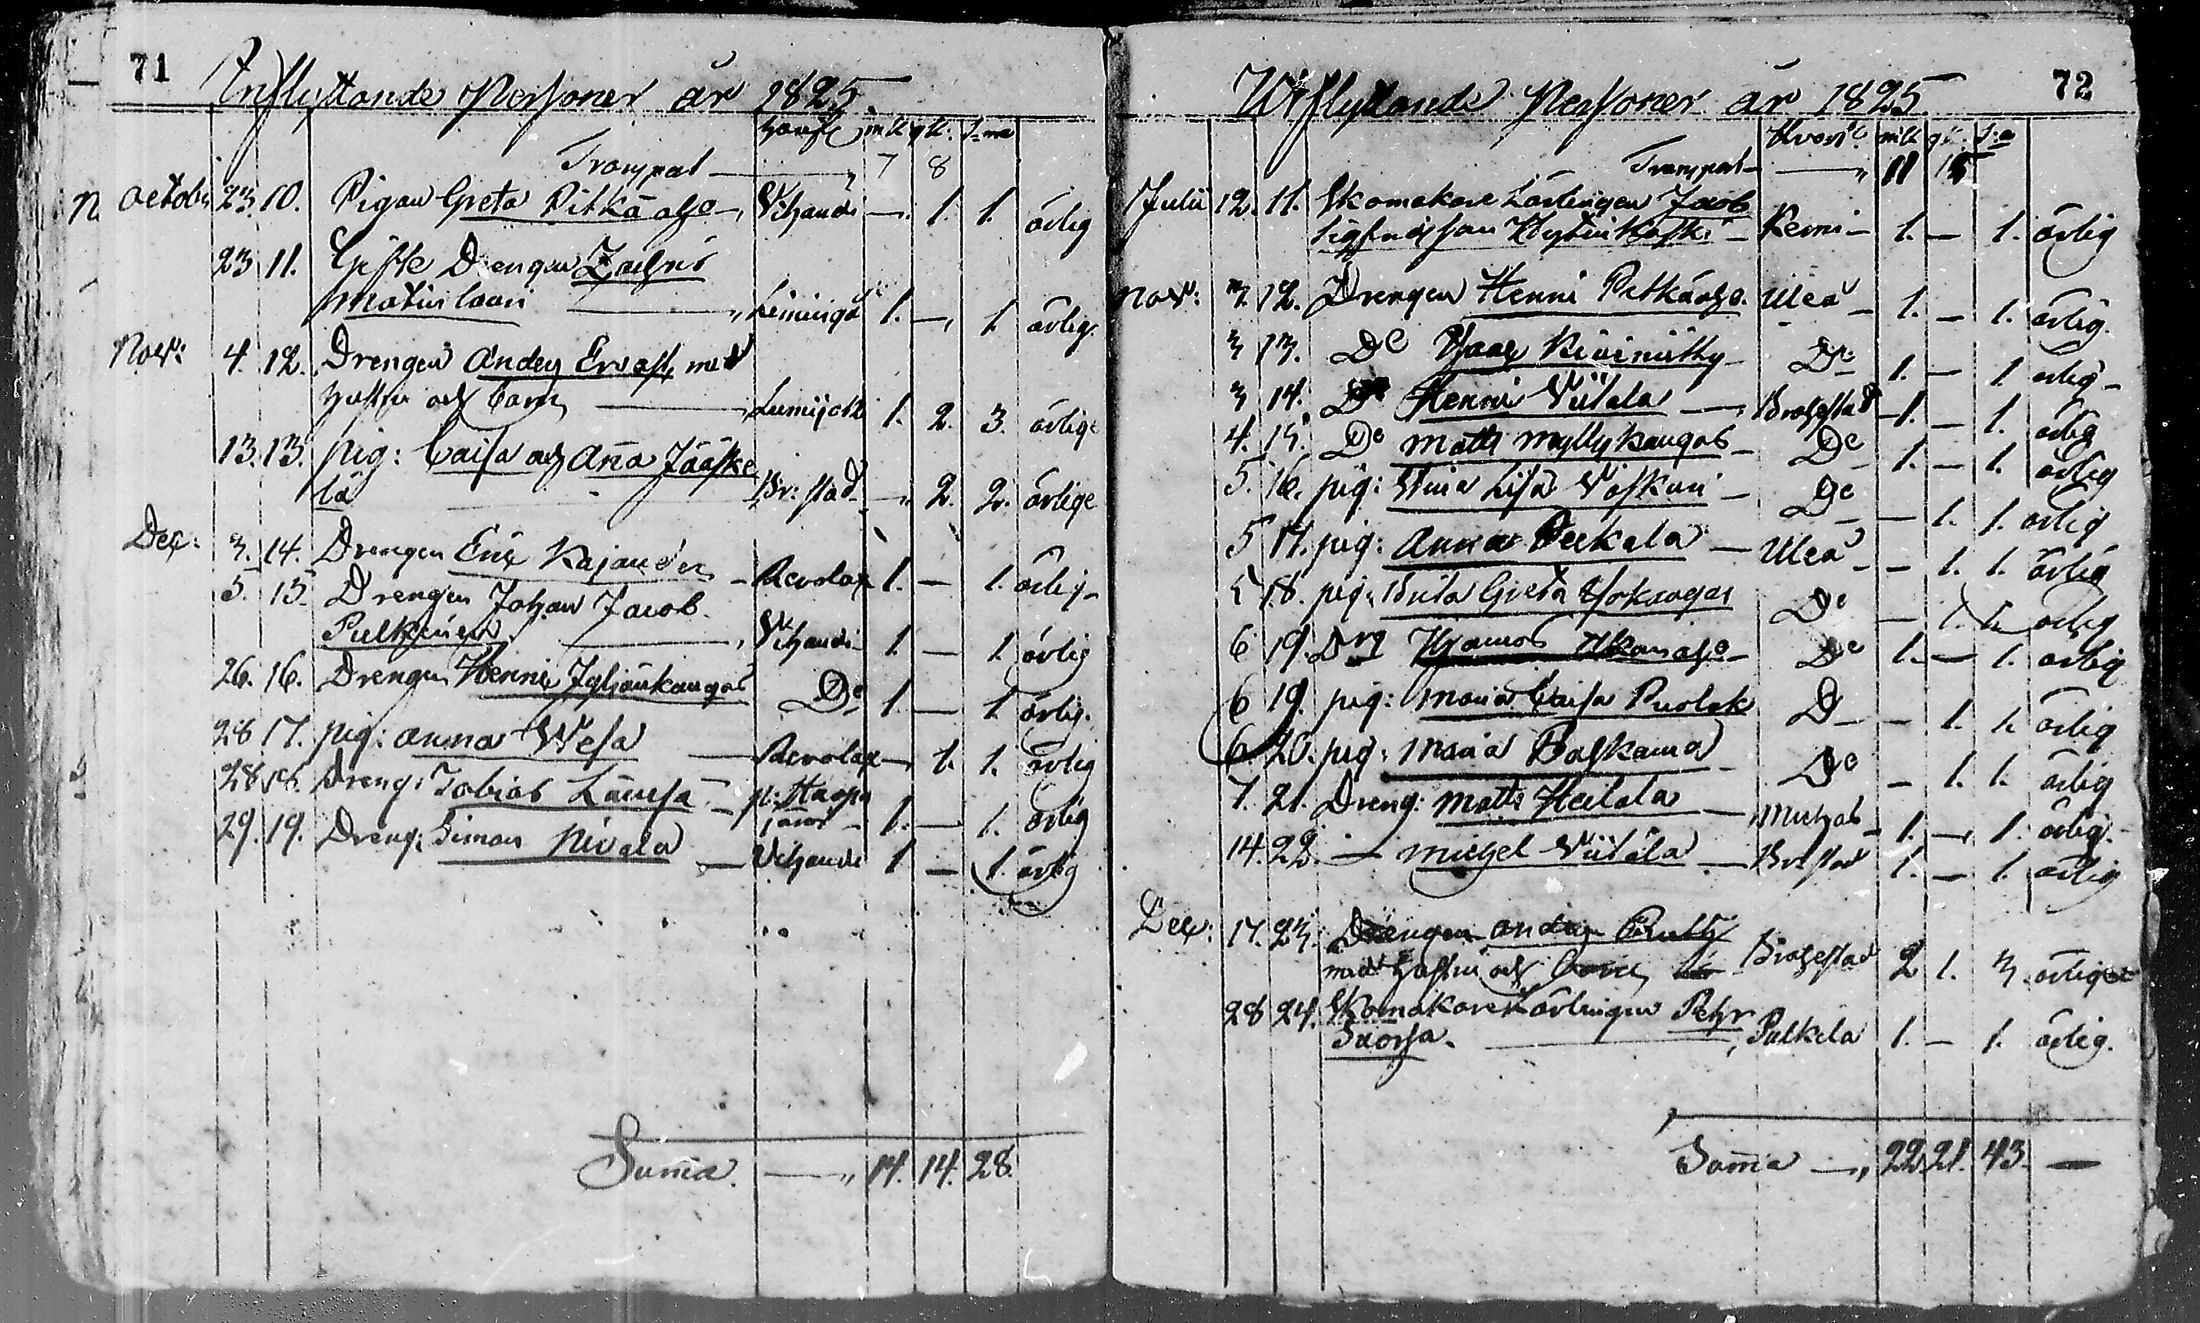 71
Inflyttande Personer år 1825.
mk qk. S:ma
Transport — " 7 8
October 23. 10. Pigan Greta Pitkäaho — Vihandi — 1. 1. ärlig
23 11. Gifte Drengen Zachris
Matinlauri — " Limingo 1. — 1. ärlig.
Nov: 4. 12. Drengen Anders Ervast med
hustru och barn — Lumijoki 1. 2. 3. ärlige
13. 13. pig: Caisa och Aña Jääske
lä Br:stad — " 2. 2. ärlige
Dec: 3. 14. Drengen Eric Kajander — Revolax 1. — 1. ärlig
5. 15. Drengen Johan Jacob
Pulkinen — Vihandi 1. — 1. ärlig
26. 16. Drengen Henric D:o 1. — 1. ärlig.
28 17. pig: Anna Wesa — Revolax — 1. 1. ärlig
28 18. Dreng: Tobias Länsfa — p: Haapa
järvi 1. — 1. ärlig
29. 19. Dreng: Simon Nivala — Vihandi 1 — 1. ärlig
Suma. — " 14. 14. 28.
72
Utflyttande Personer år 1825
Hvart. mk qk S:a
Transport — " 11 15
Julii 12. 11. Skomakare Lärlingen Jacob
Sigfridsson Hytinkoski — Kemi — 1. — 1. ärlig
Nov: 3. 12. Drengen Henric Pitkäaho. Uleå 1. — 1. ärlig.
3 13. D:o Isaac Kiviniitty — D:o 1. — 1 ärlig
3 14. D:o Henric Viitala — Brahestad 1. — 1. ärlig
4. 15. D:o Matts Myllykangas — D:o 1. — 1. ärlig
5. 16. pig: Lisa — D:o — 1. 1. ärlig
5 17. pig: Anna Peckala — Uleå — 1. 1. ärlig
5 18. pig: Brita Greta D:o — 1. 1. ärlig
6 19. Drg D:o 1. — 1. ärlig
6 19. pig: Maria Caisa Puolak D:o — 1. 1. ärlig
6. 20. pig: Maria D:o — 1. 1. ärlig
7. 21. Dreng: Matts Heilala — 1. — 1. ärlig.
14. 22. — Michel Viitala — Br:stad 1. — 1. ärlig
Dec: 17. 23. Drengen Anders
med hustru och barn Brahestad 2 1. 3. ärlige
28 24. Skomakare Lärlingen Pehr
Suorsa. — Pulkila 1. — 1. ärlig.
Suma — " 22. 21. 43. —